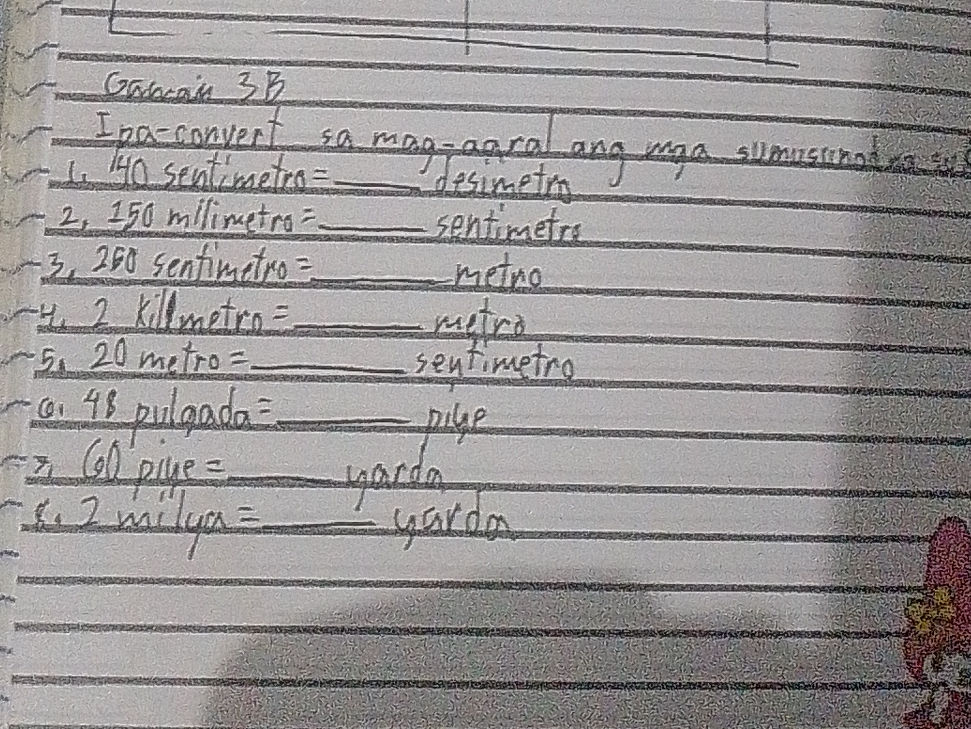 Gawain 3B
Ipa-convert sa mag-aaral ang mga sumusunod na
1. 140 sentimetro = ____ desimetro
2. 150 milimetro = ____ sentimetro
3. 260 sentimetro = ____ metro
4. 2 Killmetro = ____ metro
5. 20 metro = ____ sentimetro
6. 48 pulgada = ____ piye
7. 60 piye = ____ yarda
8. 2 milya = ____ yarda